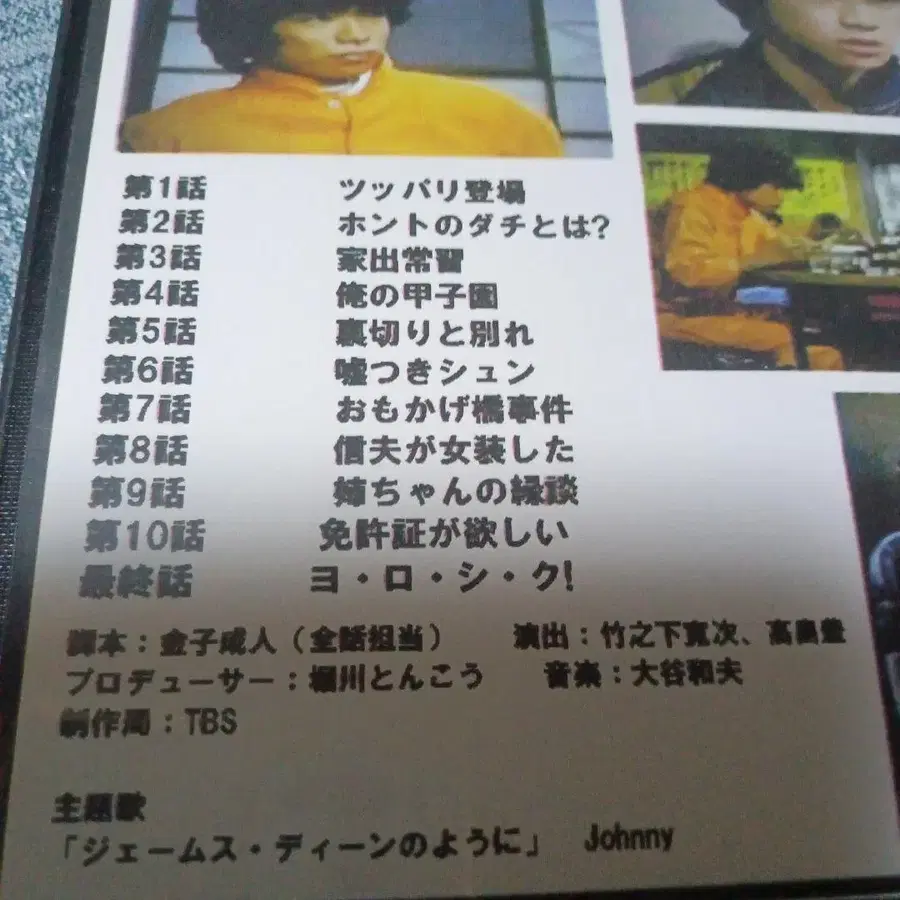 第1話 ツッパリ登場
第2話 ホントのダチとは?
第3話 家出常習
第4話 俺の甲子園
第5話 裏切りと別れ
第6話 嘘つきシュン
第7話 おもかげ橋事件
第8話 信夫が女装した
第9話 姉ちゃんの縁談
第10話 免許証が欲しい
最終話 ヨ・ロ・シ・ク!
脚本:金子成人(全話担当) 演出:竹之下寛次、高畠豊
プロデューサー:堀川とんこう 音楽:大谷和夫
制作局:TBS
主題歌
「ジェームス・ディーンのように」 Johnny